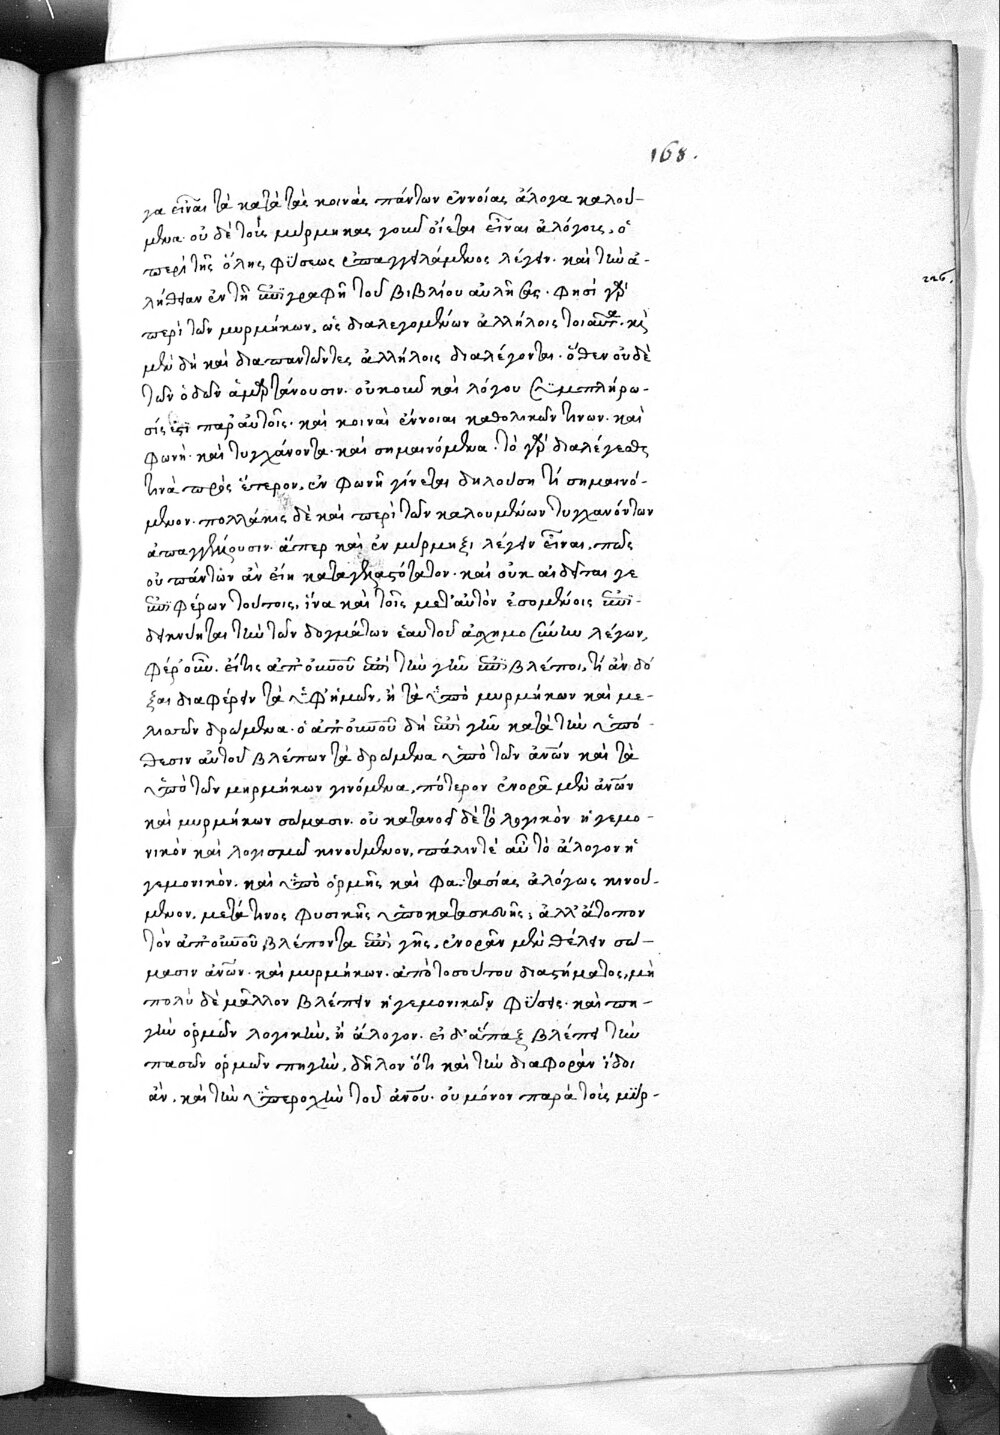 168.
γα εἶναι τὰ κατὰ τὰς κοινὰς πάντων ἐννοίας ἄλογα καλού-
μενα. οὐ δὲ τοὺς μύρμηκας γοῦν οἴεται εἶναι ἀλόγους, ὁ
περὶ τῆς ὅλης φύσεως ἐπαγγελάμενος λέγειν. καὶ τὴν ἀ-
λήθειαν ἐν τῇ ἐπιγραφῇ τοῦ βιβλίου αὐχήσας. φησὶ γὰρ
περὶ τῶν μυρμήκων, ὡς διαλεγομένων ἀλλήλοις τοιαῦτα. καὶ
μὲν δὴ καὶ ἀπαντῶντες ἀλλήλοις διαλέγονται. ὅθεν οὐδὲ
τῶν ὁδῶν ἁμαρτάνουσιν. οὐκοῦν καὶ λόγου συμπλήρω-
σίς ἐστι παρ' αὐτοῖς. καὶ κοιναὶ ἔννοιαι καθολικῶν τινων. καὶ
φωνὴ. καὶ τυγχάνοντα. καὶ σημαινόμενα. τὸ γὰρ διαλέγεσθαι
τινὰ πρὸς ἕτερον, ἐν φωνῇ γίνεται δηλούσῃ τί σημαινό-
μενον. πολλάκις δὲ καὶ περὶ τῶν καλουμένων τυγχανόντων
ἀπαγγέλλουσιν. ἅπερ καὶ ἐν μύρμηξι λέγειν εἶναι, πῶς
οὐ πάντων ἂν εἴη καταγελαστότατον. καὶ οὐκ αἰδεῖται γε
ἐπιφέρων τούτοις, ἵνα καὶ τοῖς μετ' αὐτὸν ἐσομένοις ἐπι-
δεικνύηται τὴν τῶν δογμάτων ἑαυτοῦ ἀσχημοσύνην λέγων,
φέρ' οὖν. εἴ τις ἀπ' οὐρανοῦ ἐπὶ τὴν γῆν ἐπιβλέποι, τί ἂν δό
ξαι διαφέρειν τὰ ὑφ' ἡμῶν, ἢ τὰ ὑπὸ μυρμήκων καὶ με-
λισσῶν δρώμενα. ὁ ἀπ' οὐρανοῦ δὴ ἐπὶ γῆν κατὰ τὴν ὑπό-
θεσιν αὐτοῦ βλέπων τὰ δρώμενα ὑπὸ τῶν ἀνων καὶ τὰ
ὑπὸ τῶν μηρμήκων γινόμενα, πότερον ἐνορᾶ μὲν ἀνων
καὶ μυρμήκων σώμασιν. οὐ κατανοεῖ δὲ τὸ λογικὸν ἡγεμο-
νικὸν καὶ λογισμῶ κινούμενον, πάλιν τὲ αὖ τὸ ἄλογον ἡ
γεμονικὸν. καὶ ὑπὸ ὁρμῆς καὶ φαντασίας ἀλόγως κινού-
μενον. μετά τινος φυσικῆς ὑποκατασκευῆς; ἀλλ' ἄτοπον
τὸν ἀπ' οὐρανοῦ βλέποντα ἐπὶ γῆς, ἐνορᾶν μὲν θέλειν σώ-
μασιν ἀνων. καὶ μυρμήκων. ἀπὸ τοσούτου διαστήματος, μὴ
πολὺ δὲ μᾶλλον βλέπειν ἡγεμονικῶν φύσεις. καὶ πη-
γὴν ὁρμῶν λογικὴν, ἢ ἄλογον. εἰ δ' ἅπαξ βλέπει τὴν
πασῶν ὁρμῶν πηγὴν, δῆλον ὅτι καὶ τὴν διαφορὰν ἴδοι
ἂν. καὶ τὴν ὑπεροχὴν τοῦ ἀνου. οὐ μόνον παρὰ τοὺς μύρ-